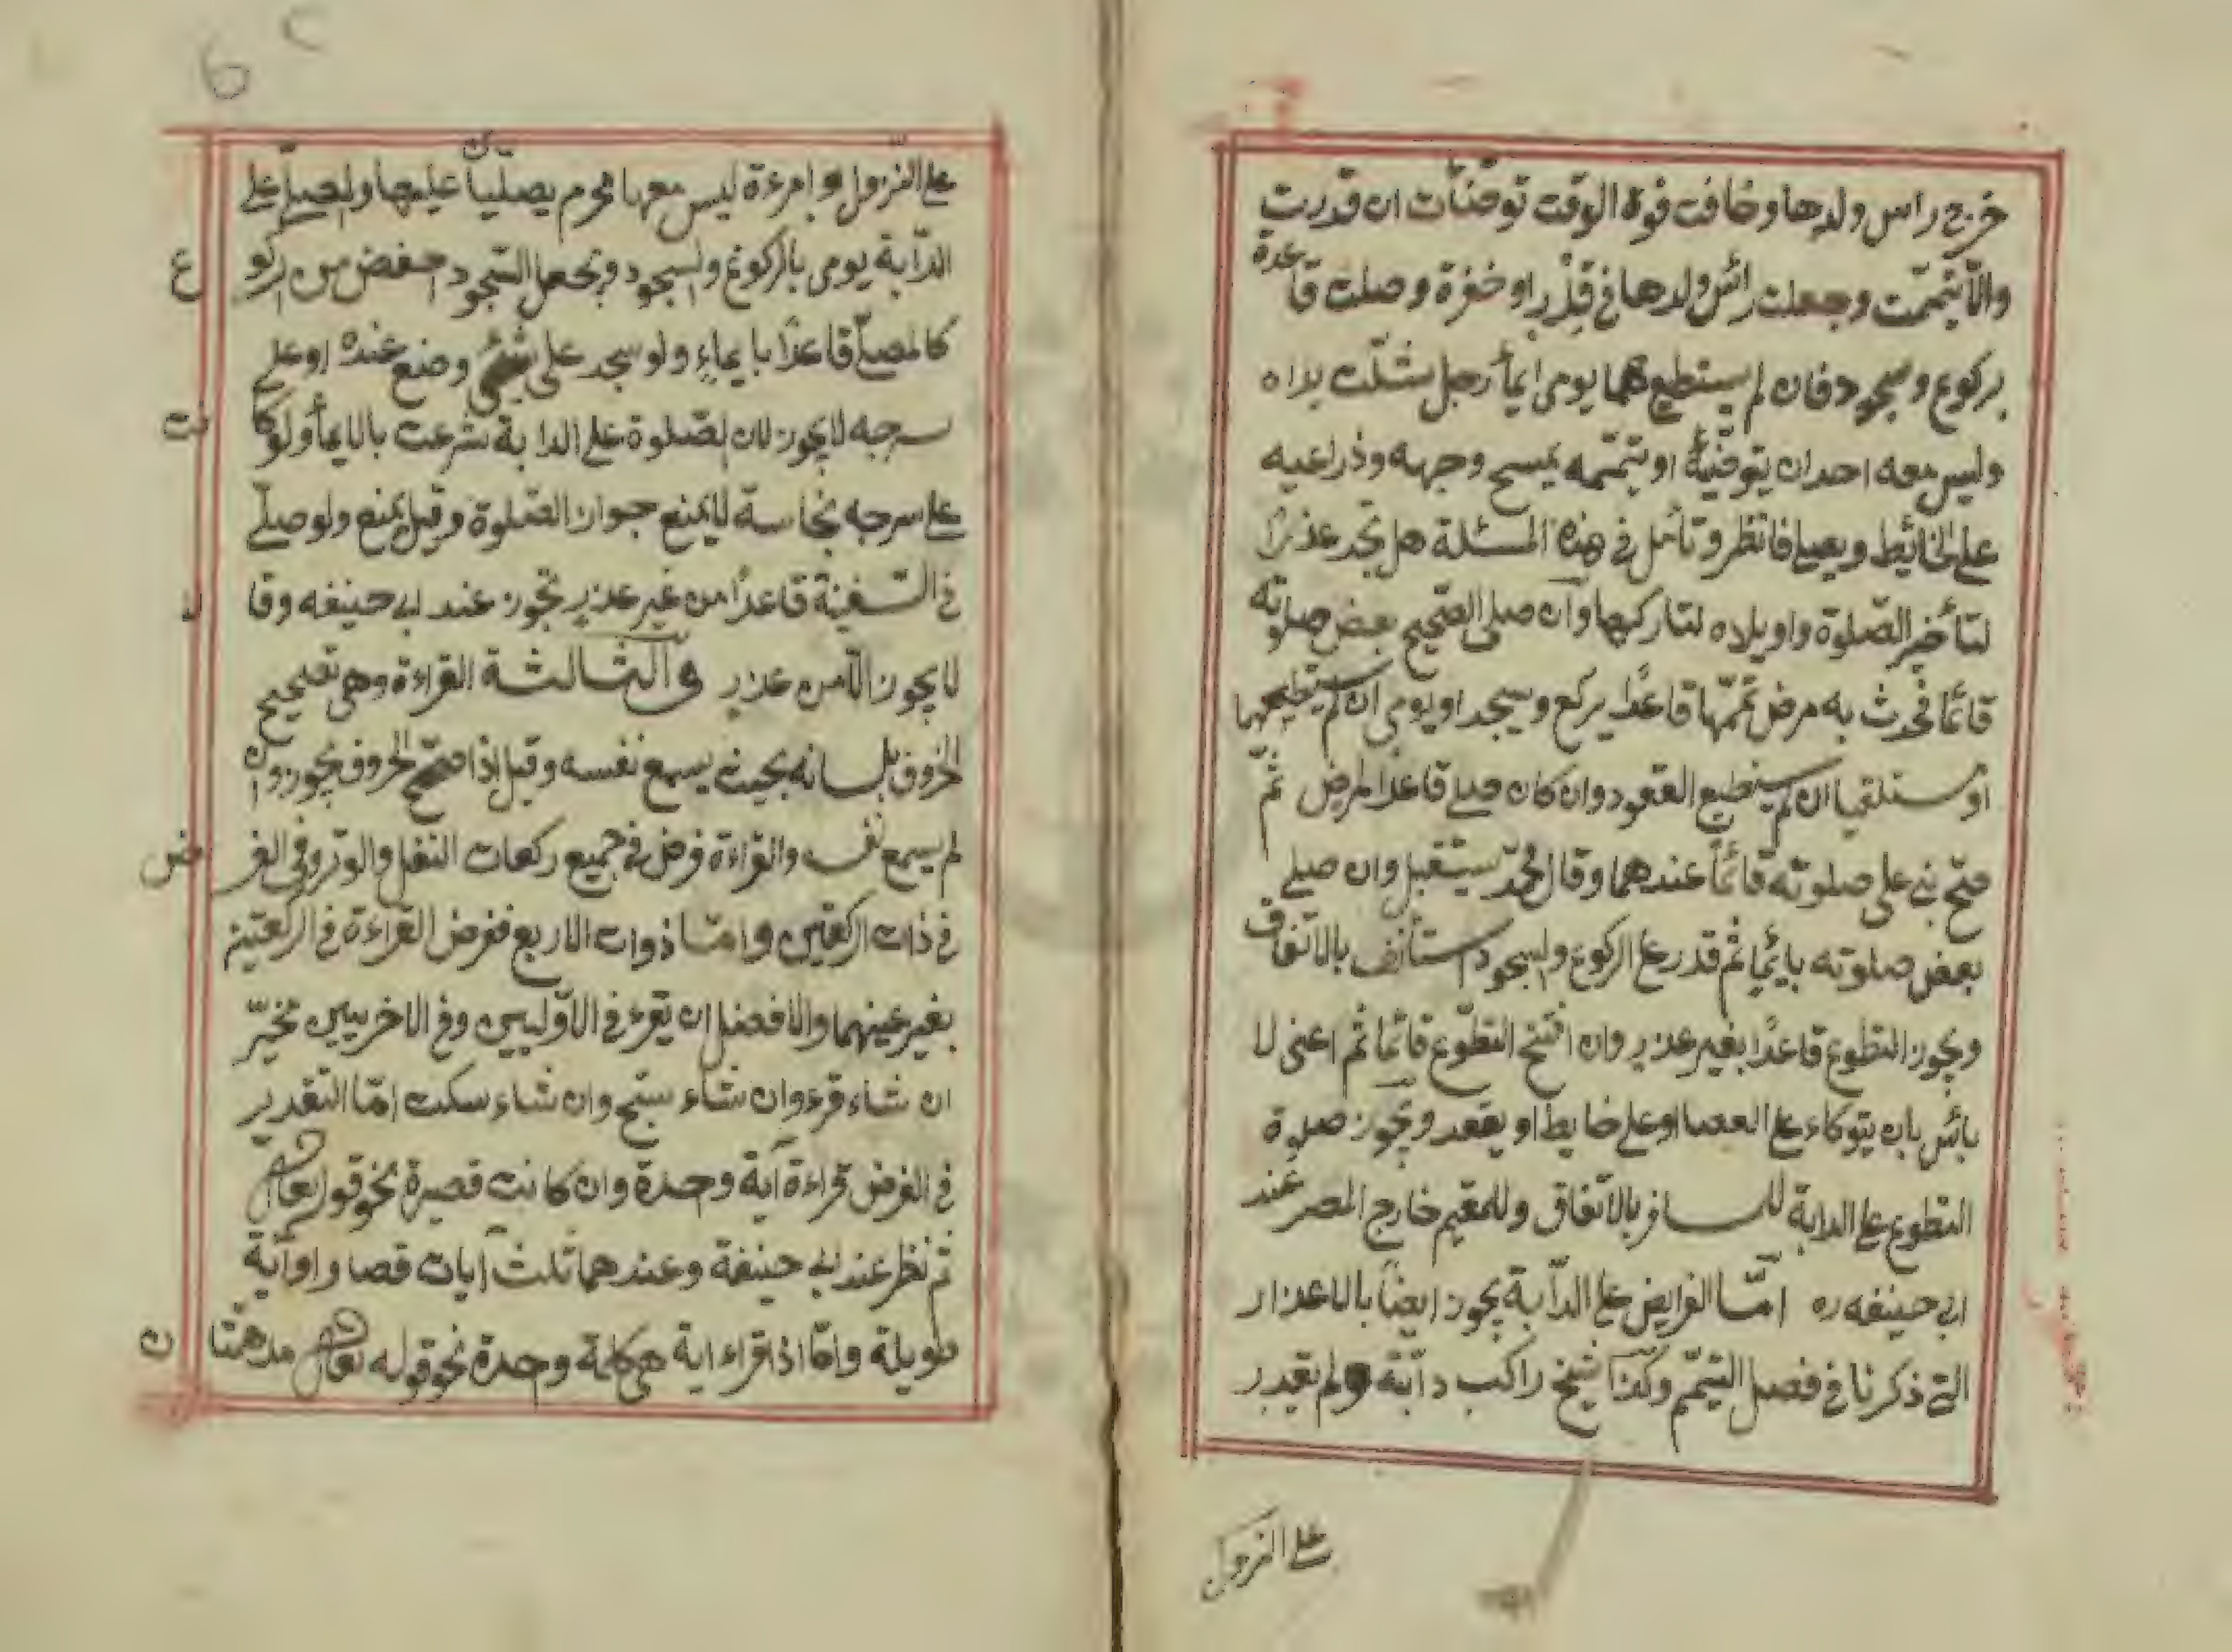 خرج راس ولدها وخافت فوة الوقت توضئات ان قدرت
والّا يتممّت وجعلت رائس ولدها فى قِدْرٍ او خفرة وصلت قاعدة
بركوع وسجود فان لم يستطيع هما يومى ايمأ رجل شلّت يداه
وليس معه احد ان يتوضّيهُ او يتممّه يمسح وجهه وذراعيه
على الحائيط ويصلى فانظر وتأمل فى هذه المسئلة هل تجد عذرًا
لتأخير الصّلوة واويلاه لتاركها وان صلى الصّحيح بعض صلوته
قائمًا فحدث به مرض تممّها قاعدًا يركع ويسجد او يومى ان لم يستطيعهما
او مستلقيا ان لم يستطيع القعود وان كان صلى قاعدا لمرض ثمّ
صحّ بنى على صلوته قائمًا عندهما وقال محمّد يستقبل وان صلى
بعض صلوته بايمًا ثم قدر على الركوع والسجود استأنف بالاتّفاق
ويجوز التطوع قاعدًا بغير عذر وان افتتح التطوّع قائمًا ثم اعنى لا
بائس بان يتوكاء على العصا او على خايط او يقعد ويجوز صلوة
التطوع على الدابة للمسافر بالاتفاق وللمقيم خارج المصر عند
ابى حنيفه ره امّا الفرايض على الدّابة يجوز ايضًا بالاعذار
التى ذكرنا فى فصل التيمّم وكذا شيخ راكب دابّة ولم يقدر
على النزول
على النّزول او امرءة ليس معها محرم يصليان عليها والمصلّى على
الدّابة يومى بالركوع والسجود ويجعل السّجود اخفض من الركوع
كالمصلّى قاعدًا بايماءٍ ولو سجد على شئ وضع عنده او على
سرجه لا يجوز لان الصّلوة على الدابة شرعت بالايمأ ولو كانت
على سرجه نجاسة لا يمنع جواز الصّلوة وقيل يمنع ولو صلّى
فى السّفينة قاعدًا من غير عذرٍ تجوز عند ابى حنيفه وقالا
لا يجوز الّا من عذرٍ والثالثة القراءة وهى تصحيح
الحروف بلسانه بحيث يسمع نفسه وقيل اذا صحّح الحروف يجوز وان
لم يسمع نفسه والقراءة فرض فى جميع ركعات النفل والوتر وفى الفرض
فى ذات الركعتين وامّا ذوات الاربع ففرض القراءة فى الركعتين
بغير عينهما والافضل ان يقرء فى الاوّليين وفى الاخريين تخيّر
ان شاء قرء وان شاء سبّح وان شاء سكت امّا التقدير
فى الفرض قراءة آية وحدة وان كانت قصيرة نحو قوله تعالى
ثم نظر عند ابى حنيفة وعندهما ثلث آيات قصار او آية
طويلة وامّا اذا قراء اية هى كلمة وحدة نحو قوله تعالى مدهمتان